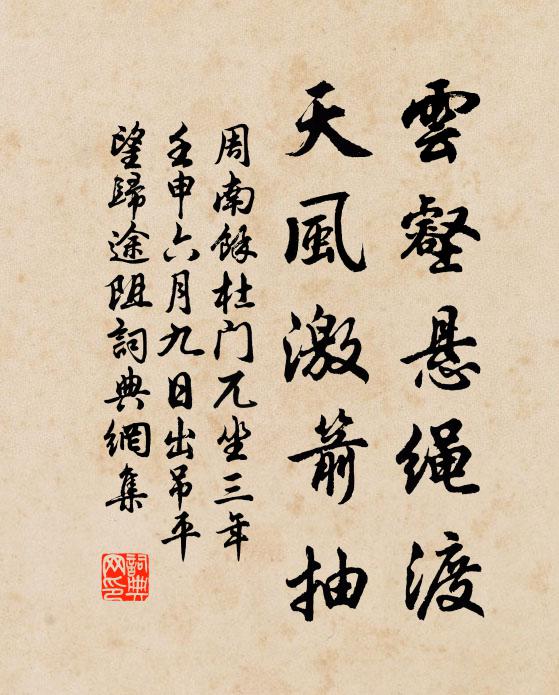 雲壑悬绳渡
天風激箭抽
周南餘杜门兀坐三年
壬申六月九日出吊平
望歸途阻詞典網集
詞典
网印